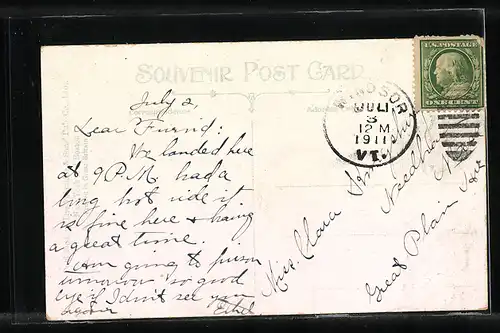 SOUVENIR POST CARD
U.S. POSTAGE
ONE CENT
WINDSOR
JUL
3
12 M
1911
VT.
July 2,
Dear Furnid:
We landed here
at 9 P.M. had a
long hot ride it
is fine here & having
a great time.
am going to prison
tomorrow so good
bye if I don't see you
again Ethel
Miss. Clara
Needham
Great Plain Ave